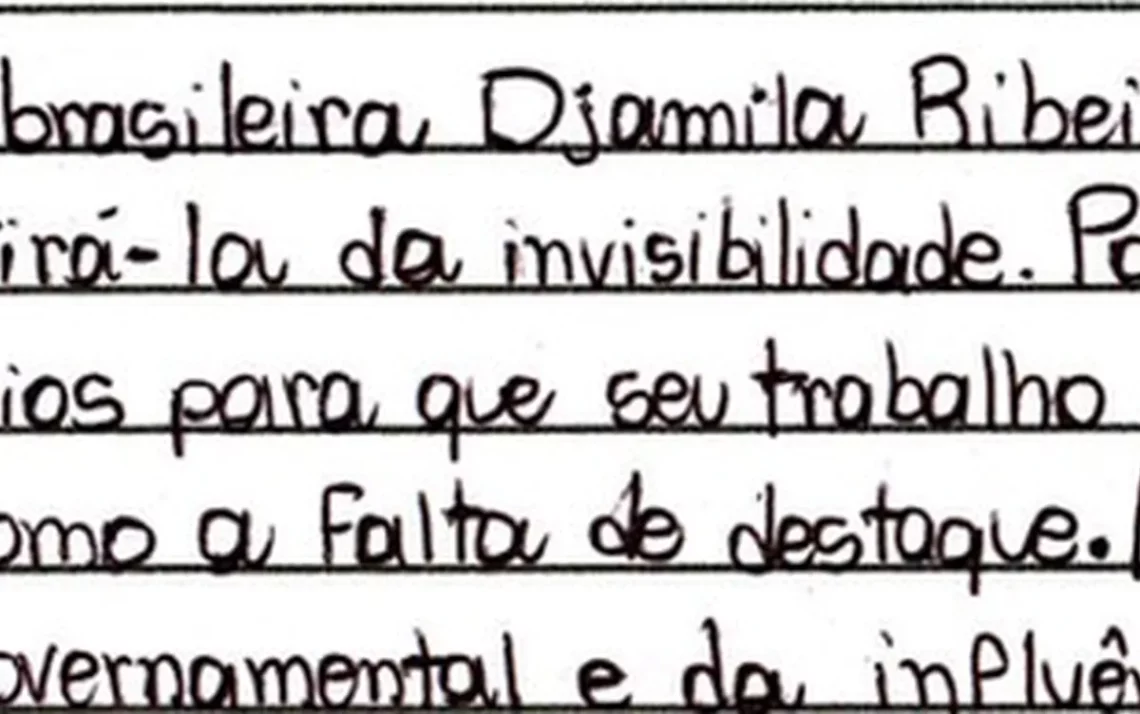 brasileira Djamila Ribei
irá-la da invisibilidade. Po
ios para que seu trabalho
omo a falta de destaque.
overnamental e da influê